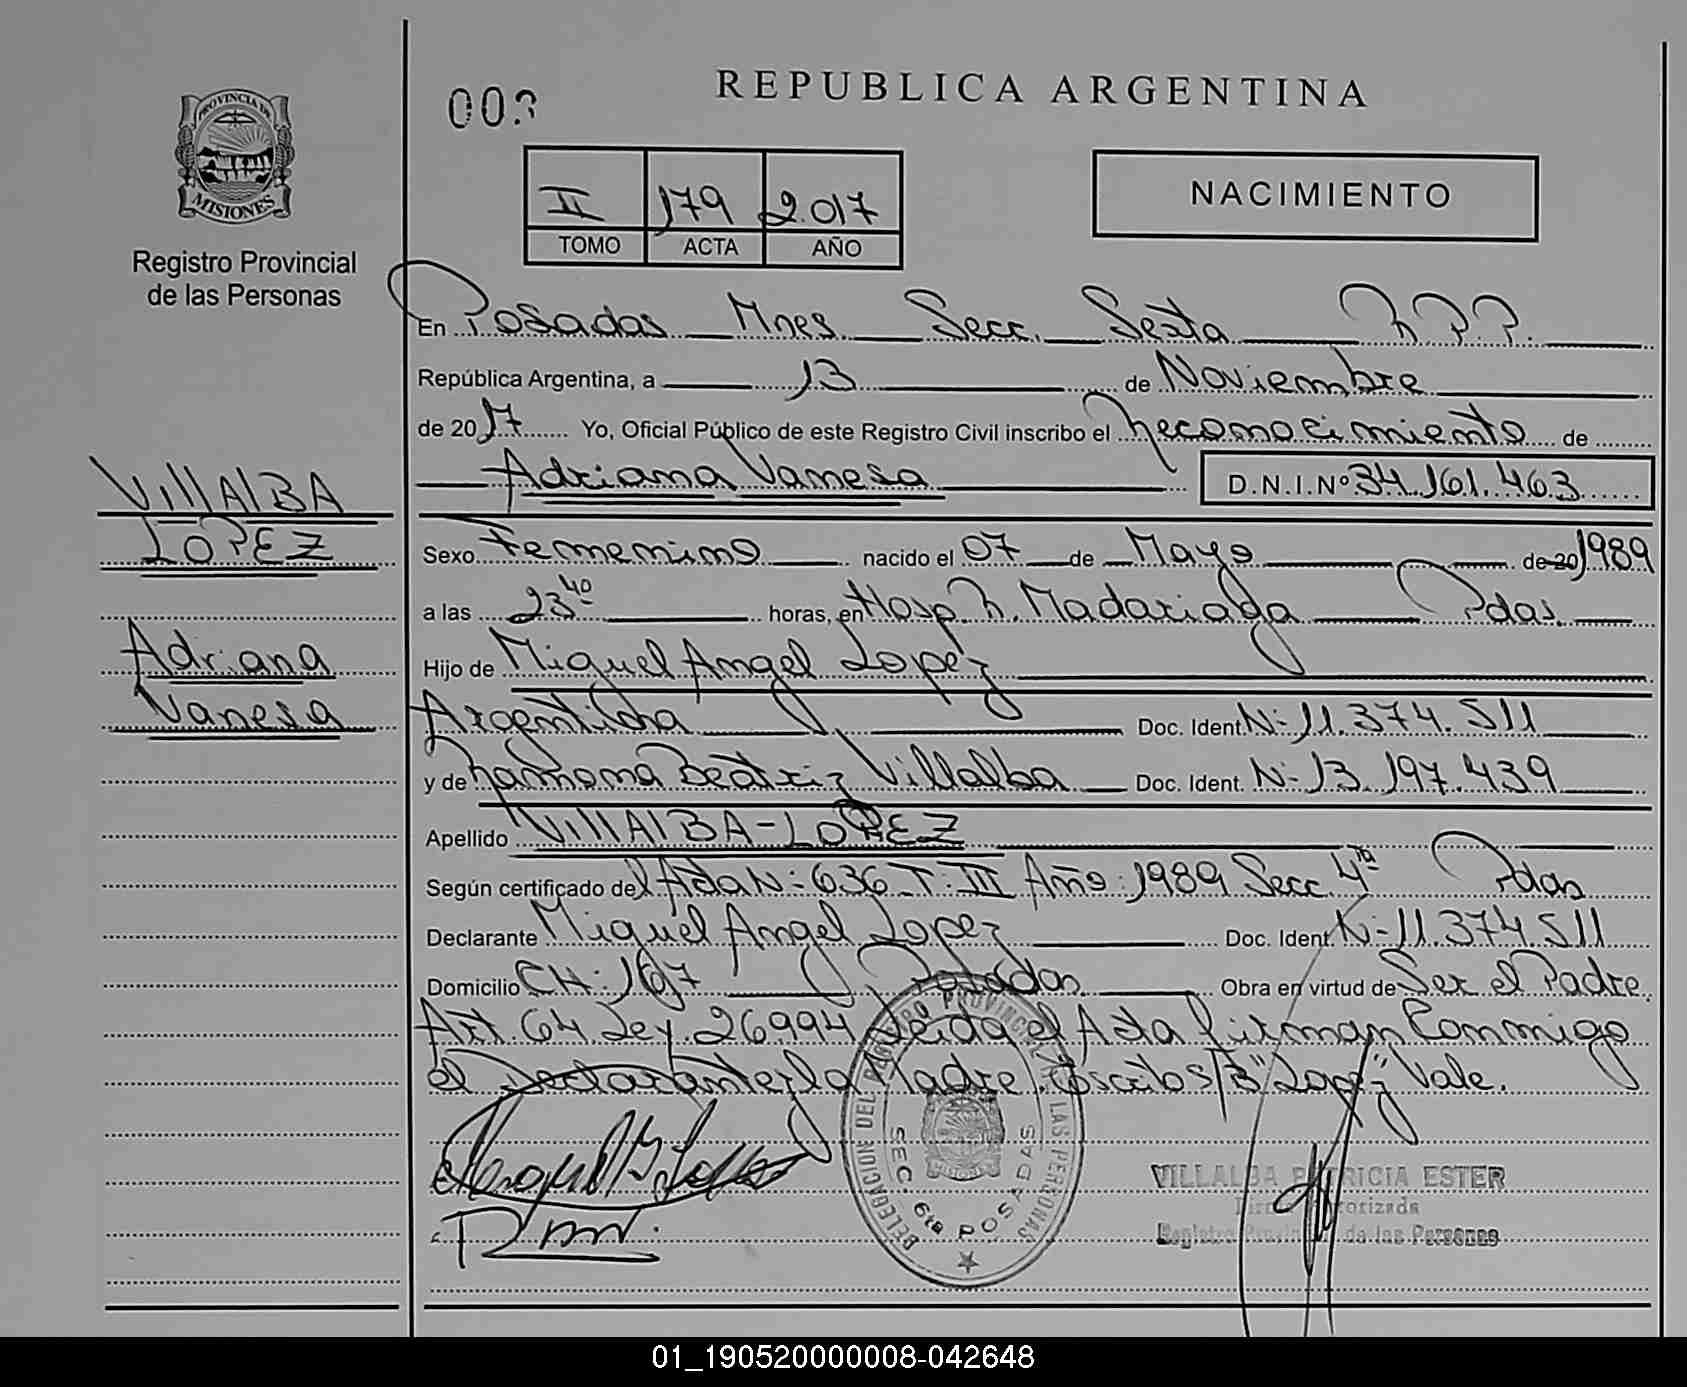 PROVINCIA DE
MISIONES
Registro Provincial
de las Personas
VIllAlBA
LOPEZ
Adriana
Vanesa
003
REPUBLICA ARGENTINA
II 179 2.017
TOMO ACTA AÑO
NACIMIENTO
En Posadas Mnes. Secc. Sexta R.P.P.
República Argentina, a 13 de Noviembre
de 2017 Yo, Oficial Público de este Registro Civil inscribo el Reconocimiento de
Adriana Vanesa D.N.I.Nº 34.161.463
Sexo Femenino nacido el 07 de Mayo de 20 1989
a las 23 40 horas, en Hosp. R. Madariaga Pdas.
Hijo de Miguel Angel Lopez
Argentina Doc. Ident. N- 11.374.511
y de Ramona Beatriz Villalba Doc. Ident. N- 13.197.439
Apellido VIllAlBA-LOPEZ
Según certificado del Acta N- 636 T: III Año: 1989 Secc. 4ta Pdas
Declarante Miguel Angel Lopez Doc. Ident. N- 11.374.511
Domicilio CH: 167 Posadas Obra en virtud de Ser el Padre.
Art. 64 Ley. 26994 Leida el Acta firman Conmigo
el Declarante y la Madre. Escritos/B "Lopez" Vale.
DELEGACION DEL REGISTRO PROVINCIAL DE LAS PERSONAS
SEC. 6ta POSADAS
MISIONES
VILLALBA PATRICIA ESTER
Firma Autorizada
Registro Provincial de las Personas
01_190520000008-042648